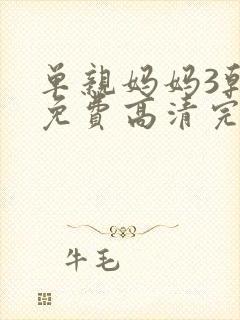 单亲妈妈3韩
免费高清完
牛毛